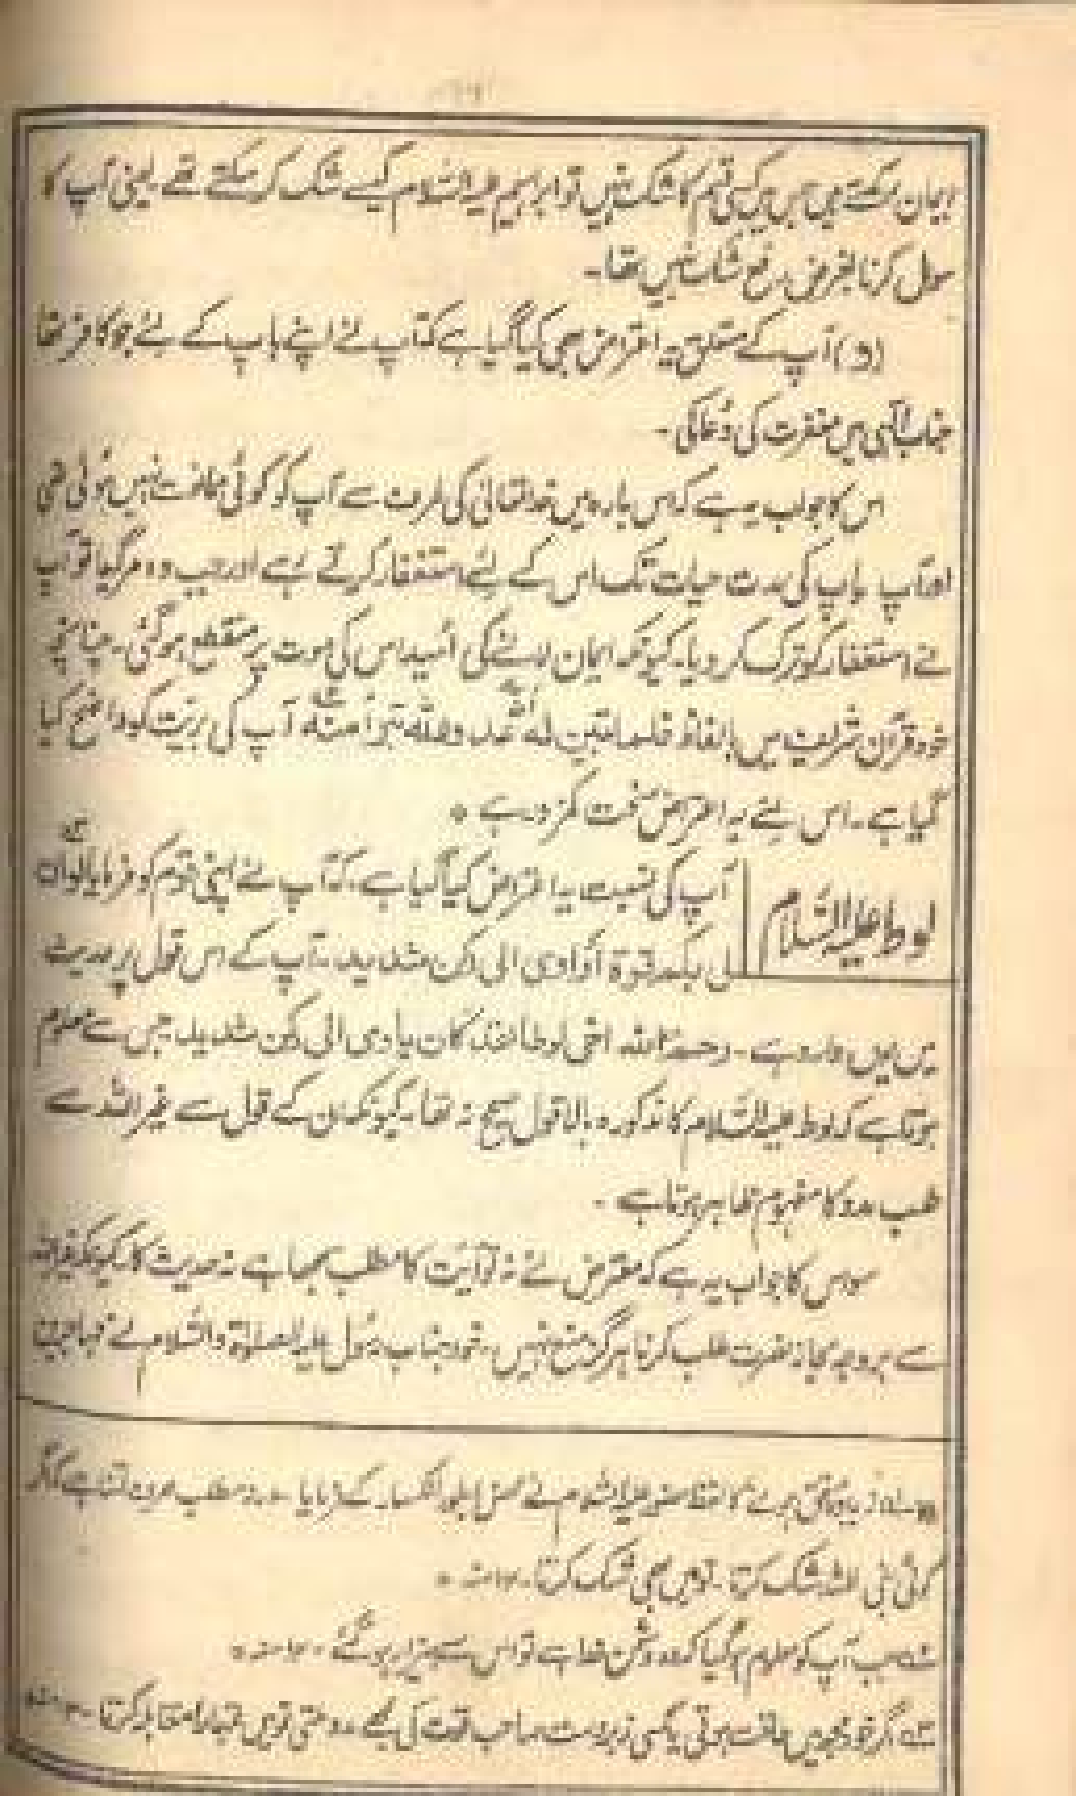 ایمان رکھتے ہیں جس میں کسی قسم کا شک نہیں تو ابراہیم علیہ السلام کیسے شک کر سکتے تھے۔ یعنی آپ کا
سوال کرنا بغرض رفع شک نہیں تھا۔
(و) آپ کے متعلق یہ اعتراض بھی کیا گیا ہے کہ آپ نے اپنے باپ کے لئے جو کافر تھا
جناب الٰہی میں مغفرت کی دُعا کی۔
اس کا جواب یہ ہے کہ اس بارہ میں خدا تعالیٰ کی طرف سے آپ کو کوئی ممانعت نہیں ہوئی تھی
اور آپ باپ کی مدت حیات تک اس کے لئے استغفار کرتے رہے اور جب وہ مر گیا تو آپ
نے استغفار کو ترک کر دیا۔ کیونکہ ایمان لانے کی اُمید اس کی موت پر منقطع ہو گئی۔ چنانچہ
خود قرآن شریف میں بالفاظ فلما تبین لہ انہ عدو للہ تبرأ منہ آپ کی بریّت کو واضح کیا
گیا ہے۔ اس لئے یہ اعتراض سخت کمزور ہے ۰
لوط علیہ السّلام
آپ کی نسبت یہ اعتراض کیا گیا ہے، کہ آپ نے اپنی قوم کو فرمایا لو ان
لی بکم قوۃ اَوْ اٰوی الی رکن شدید۔ آپ کے اس قول پر حدیث
میں یوں وارد ہے۔ رحمۃ اللہ اخی لوطا لقد کان یاوی الی رکن شدید جس سے معلوم
ہوتا ہے کہ لوط علیہ السّلام کا مذکورہ بالا قول صحیح نہ تھا۔ کیونکہ ان کے قول سے غیر اللہ سے
طلب مدد کا مفہوم ظاہر ہوتا ہے۔
سو اس کا جواب یہ ہے کہ معترض نے نہ تو آیت کا مطلب سمجھا ہے نہ حدیث کا۔ کیونکہ غیر اللہ
سے بروجہ مجاز نصرت طلب کرنا ہرگز منع نہیں۔ خود جناب رسُول علیہ الصلوٰۃ والسّلام نے
زیادہ مستحق ہونے کا لفظ حضور علیہ السلام نے محض بطور انکسار کے فرمایا۔ ورنہ مطلب صرف اتنا ہے کہ اگر
کوئی نبی اللہ شک کرتا۔ تو میں بھی شک کرتا۔ ۱۲ منہ ۰
جب آپ کو معلوم ہو گیا کہ وہ دشمن خدا ہے تو اس سے بیزار ہو گئے۔ ۱۲ منہ ۰
اگر خود مجھ میں طاقت ہوتی یا کسی زبردست صاحب قوت کی مجھے مدد ملتی تو میں تمہارا مقابلہ کرتا۔ ۱۲ منہ